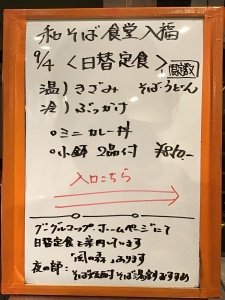 和そば食堂 入福
9/4 <日替定食> 限定数
温) きざみ そば・うどん
冷) ぶっかけ
○ミニカレー丼
○小鉢 2品付
入口こちら
グーグルマップ、ホームページにて
日替定食を案内しています
夜の部: "風の森"あります
そば焼酎 そば湯割おすすめ